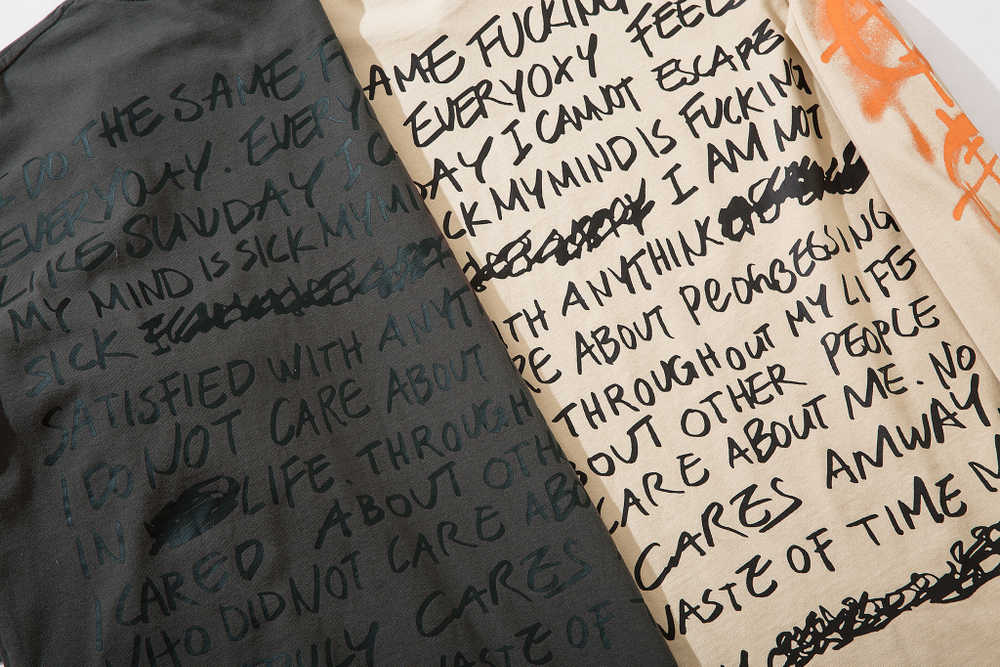 I DO THE SAME F
EVERYOAY. EVERY
LIKE SUNDAY I C
MY MIND IS SICK MY MI
SICK
SATISFIED WITH ANYT
I DO NOT CARE ABOUT
IN LIFE. THROUGH
I CARED ABOUT OTH
WHO DID NOT CARE ABO
ULY CARES
WASTE OF
AME FUCKING
EVERYOXY FEELS
AY I CANNOT ESCAPE
CK MY MIND IS FUCKING
I AM NOT
TH ANYTHINK
RE ABOUT
THROUGHOUT MY LIFE
BOUT OTHER PEOPLE
CARE ABOUT ME. NO
CARES AMWAY.
WASTE OF TIME